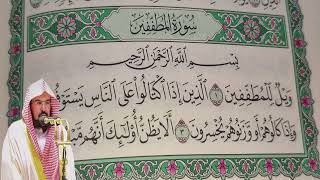 سُورَةُ المُطَفِّفِينَ
بِسْمِ اللَّهِ الرَّحْمَٰنِ الرَّحِيمِ
وَيْلٌ لِّلْمُطَفِّفِينَ ١ الَّذِينَ إِذَا اكْتَالُوا عَلَى النَّاسِ يَسْتَوْفُونَ
وَإِذَا كَالُوهُمْ أَو وَّزَنُوهُمْ يُخْسِرُونَ ٣ أَلَا يَظُنُّ أُولَٰئِكَ أَنَّهُم